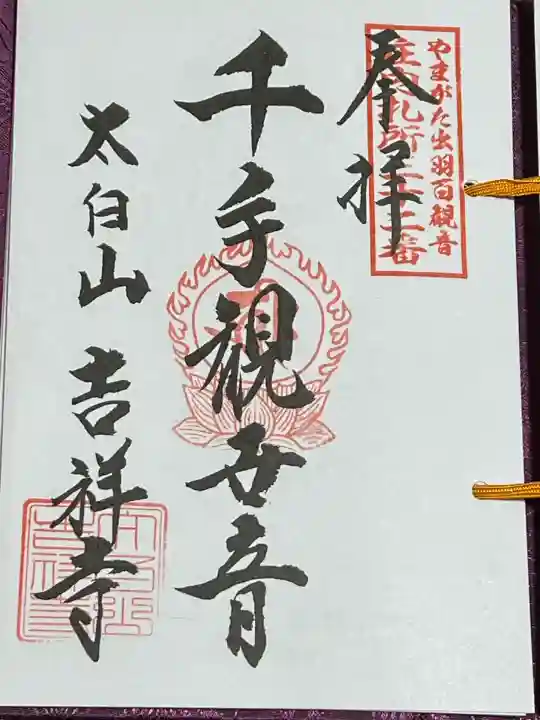 やまがた出羽百観音
庄内札所二十二番
奉拝
千手観世音
太白山 吉祥寺